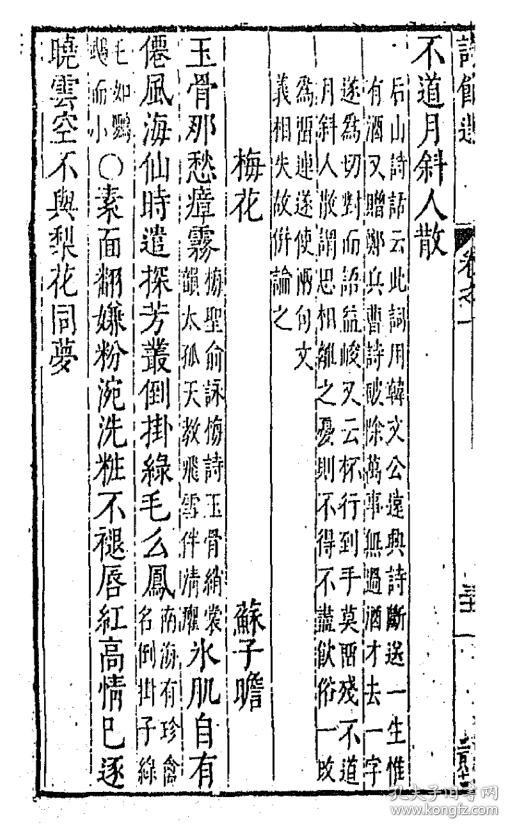 詩餘選
卷之一
不道月斜人散
后山詩話云此詞用韓文公遣興詩斷送一生惟
有酒又贈鄭兵曹詩破除萬事無過酒才去一字
遂為切對而語益峻又云杯行到手莫留殘不道
月斜人散謂思相離之憂則不得不盡飲俗一改
為留連遂使兩句文
義相失故併論之
梅花 蘇子瞻
玉骨那愁瘴霧梅聖俞詠梅詩玉骨綃裳
韻太孤天教飛雪伴清癯氷肌自有
僊風海仙時遣探芳叢倒掛綠毛么鳳南海有珍禽
名倒掛子綠
毛如鸚
鵡而小○素面翻嫌粉涴洗粧不褪唇紅高情已逐
曉雲空不與梨花同夢
孔夫子旧书网
www.kongfz.com